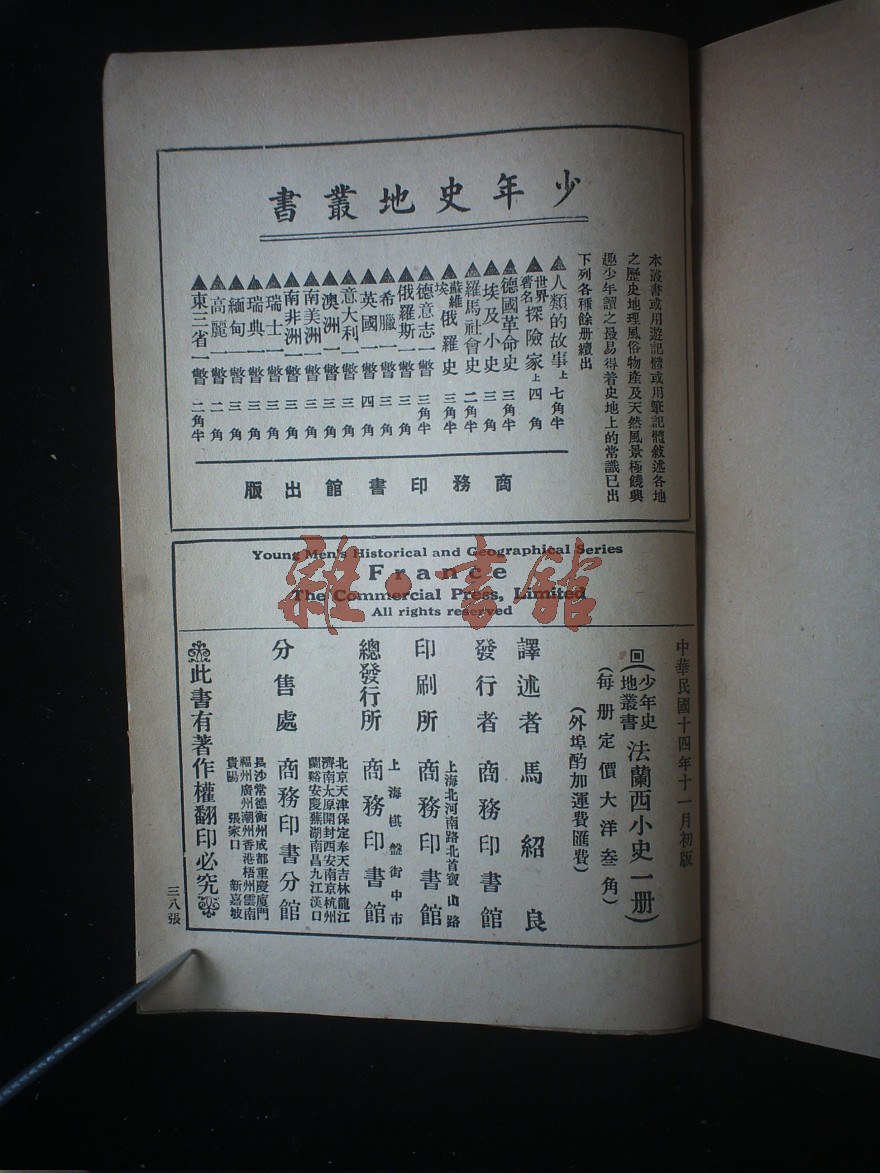 少年史地叢書
本叢書或用遊記體或用筆記體敘述各地
之歷史地理風俗物產及天然風景極饒興
趣少年讀之最易得着史地上的常識已出
下列各種餘册續出
▲人類的故事上 七角半
▲世界著名探險家上 四角
▲德國革命史 三角半
▲埃及小史 三角
▲羅馬社會史 二角半
▲蘇維埃俄羅史 三角半
▲德意志一瞥 三角半
▲俄羅斯一瞥 三角
▲希臘一瞥 三角
▲英國一瞥 四角
▲意大利一瞥 三角
▲澳洲一瞥 三角
▲南美洲一瞥 三角
▲南非洲一瞥 三角
▲瑞士一瞥 三角
▲瑞典一瞥 三角
▲緬甸一瞥 三角
▲高麗一瞥 二角
▲東三省一瞥 二角半
商務印書館出版
Young Men's Historical and Geographical Series
France
The Commercial Press, Limited
All rights reserved
雜·書館
中華民國十四年十一月初版
回(少年史地叢書法蘭西小史一册)
(每册定價大洋叁角)
(外埠酌加運費匯費)
譯述者 馬紹良
發行者 商務印書館
上海北河南路北首寶山路
印刷所 商務印書館
上海棋盤街中市
總發行所 商務印書館
北京天津保定奉天吉林龍江
濟南太原開封西安南京杭州
蘭谿安慶蕪湖南昌九江漢口
分售處 商務印書分館
長沙常德衡州成都重慶廈門
福州廣州潮州香港梧州雲南
貴陽 張家口 新嘉坡
此書有著作權翻印必究
三八張